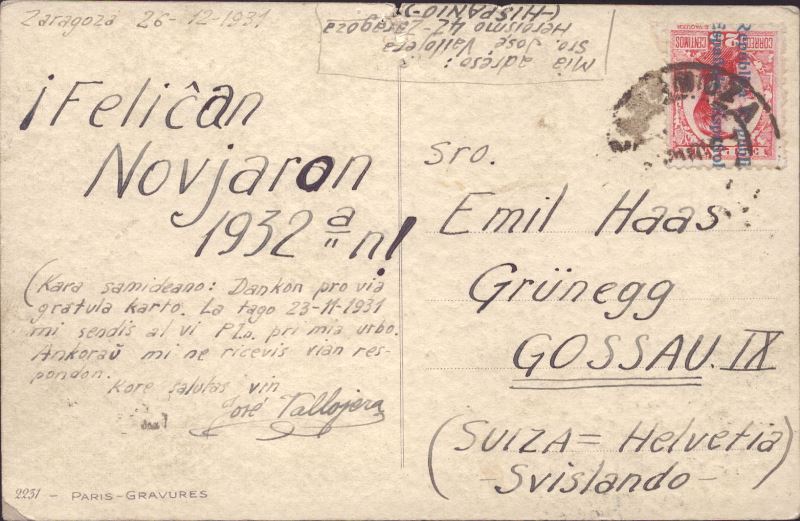 Zaragoza 26-12-1931
¡Feliĉan
Novjaron
1932ªn!
(Kara samideano: Dankon pro via
gratula karto. La tago 23-11-1931
mi sendis al vi PIo. pri mia urbo.
Ankoraŭ mi ne ricevis vian res-
pondon.
Kore salutas vin
José
2231 – PARIS-GRAVURES
Mia adreso:
Sro. José
Heroismo 42 - Zaragoza
(-HISPANIO-)
CORREOS
CENTIMOS
República Española
sro.
Emil Haas
Grünegg
GOSSAU. IX
(SUIZA = Helvetia)
-Svislando-